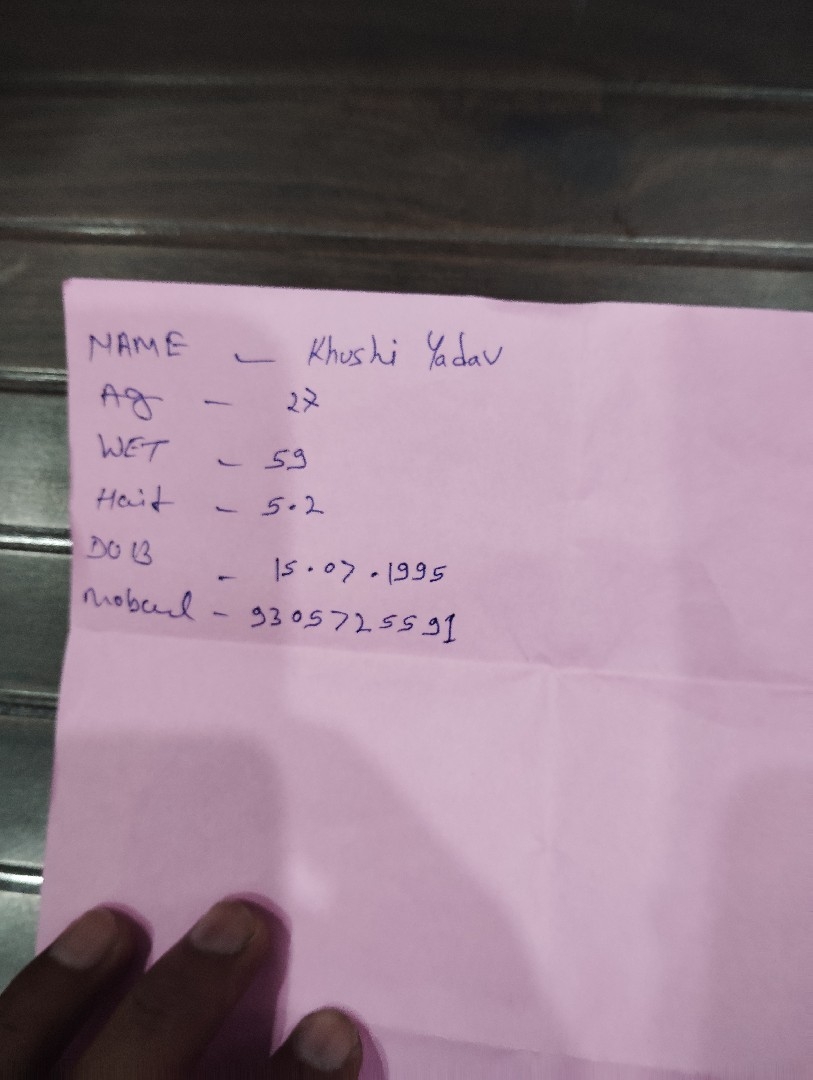 NAME - Khushi Yadav
Ag - 27
WET - 59
Hait - 5.2
DOB - 15.07.1995
- 9305725591